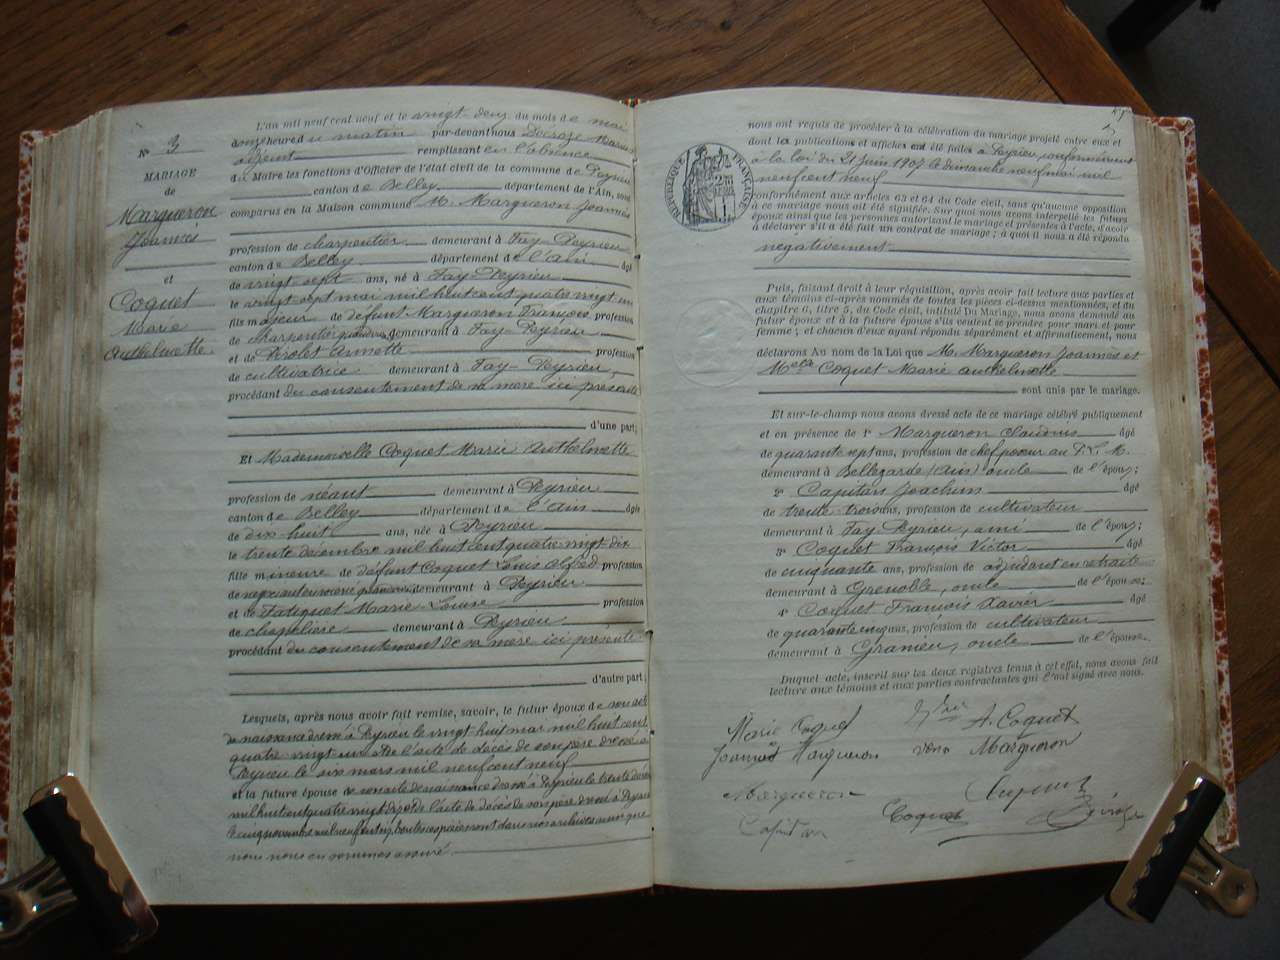 N° 3
MARIAGE
de
Margueron
Joannès
et
Coquet
Marie
Anthelmette
L'an mil neuf cent neuf et le vingt-deux du mois de mai
onze heures du matin par-devant nous Decroze Marius
adjoint remplissant en l'absence
du Maire les fonctions d'Officier de l'état civil de la commune de Peyrieu
canton de Belley département de l'Ain, sont
comparus en la Maison commune M. Margueron Joannès
profession de charpentier demeurant à Fay-Peyrieu
canton de Belley département de l'Ain âgé
de vingt sept ans, né à Fay-Peyrieu
le vingt sept mai mil huit cent quatre vingt un
fils majeur de défunt Margueron François profession
de charpentier demeurant à Fay-Peyrieu
et de Pirolet Annette profession
de cultivatrice demeurant à Fay-Peyrieu,
procédant du consentement de sa mère ici présente
d'une part;
Et Mademoiselle Coquet Marie Anthelmette
profession de néant demeurant à Peyrieu
canton de Belley département de l'Ain âgée
de dix-huit ans, née à Peyrieu
le trente décembre mil huit cent quatre-vingt-dix
fille mineure de défunt Coquet Louis Alfred profession
de demeurant à Peyrieu
et de Marie Louise profession
de chapelière demeurant à Peyrieu
procédant du consentement de sa mère ici présente
d'autre part;
Lesquels, après nous avoir fait remise, savoir, le futur époux de son acte
de naissance dressé à Peyrieu le vingt huit mai mil huit cent
quatre vingt un et de l'acte de décès de son père dressé à
Peyrieu le six mars mil neuf cent neuf
et la future épouse de son acte de naissance dressé à Peyrieu le trente décembre
mil huit cent quatre vingt dix et de l'acte de décès de son père dressé à Peyrieu
le cinq mil neuf cent toutes ces pièces sont dans nos archives ainsi que
nous nous en sommes assuré
nous ont requis de procéder à la célébration du mariage projeté entre eux et
dont les publications et affiches ont été faites à Peyrieu, conformément
à la loi du 21 juin 1907 le dimanche neuf mai mil
neuf cent neuf
REPUBLIQUE FRANÇAISE
conformément aux articles 63 et 64 du Code civil, sans qu'aucune opposition
à ce mariage nous ait été signifiée. Sur quoi nous avons interpellé les futurs
époux ainsi que les personnes autorisant le mariage et présentes à l'acte, d'avoir
à déclarer s'il a été fait un contrat de mariage; à quoi il nous a été répondu
négativement
Puis, faisant droit à leur réquisition, après avoir fait lecture aux parties et
aux témoins ci-après nommés de toutes les pièces ci-dessus mentionnées, et du
chapitre 6, titre 5, du Code civil, intitulé Du Mariage, nous avons demandé au
futur époux et à la future épouse s'ils veulent se prendre pour mari et pour
femme; et chacun d'eux ayant répondu séparément et affirmativement, nous
déclarons Au nom de la Loi que M. Margueron Joannès et
Melle Coquet Marie Anthelmette
sont unis par le mariage.
Et sur-le-champ nous avons dressé acte de ce mariage célébré publiquement
et en présence de 1° Margueron Claudius âgé
de quarante sept ans, profession de chef poseur au P. L. M.
demeurant à Bellegarde (Ain) oncle de l'époux;
2° Capitan Joachim âgé
de trente trois ans, profession de cultivateur
demeurant à Fay-Peyrieu, ami de l'époux;
3° Coquet François Victor âgé
de cinquante ans, profession de adjudant en retraite
demeurant à Grenoble, oncle de l'épouse;
4° Coquet François Xavier âgé
de quarante cinq ans, profession de cultivateur
demeurant à Grameu, oncle de l'épouse.
Duquel acte, inscrit sur les deux registres tenus à cet effet, nous avons fait
lecture aux témoins et aux parties contractantes qui l'ont signé avec nous.
Marie Coquet A. Coquet
Joannès Margueron Margueron
Margueron
Capitan Coquet